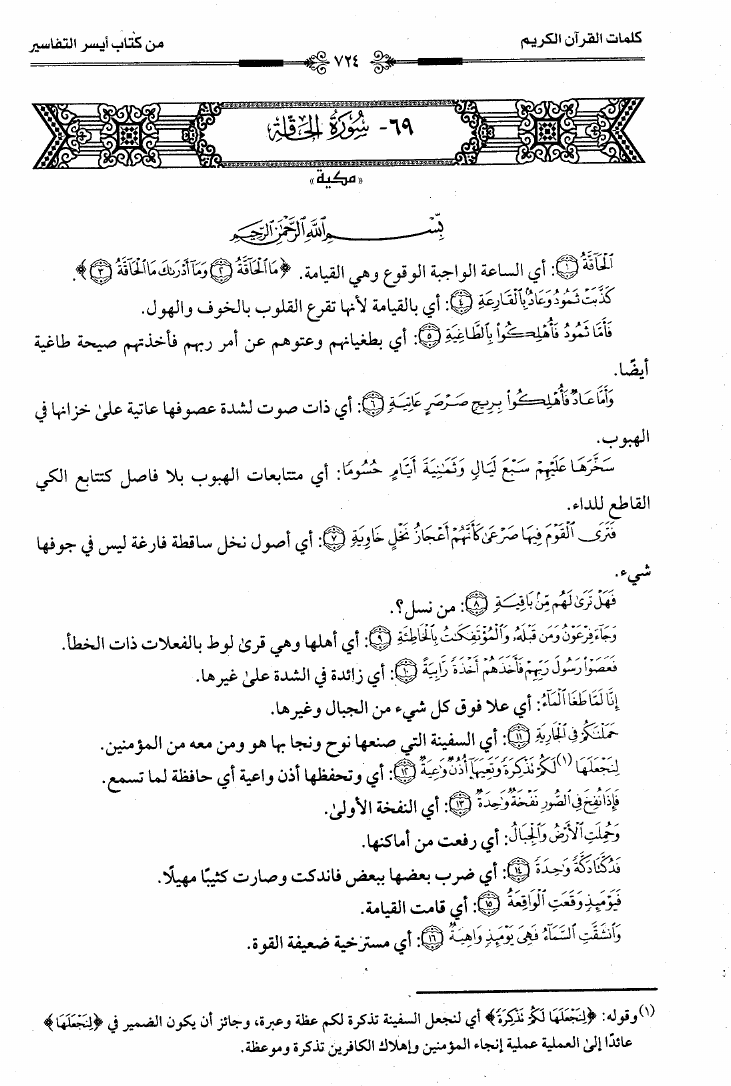 كلمات القرآن الكريم
٧٢٤
من كتاب أيسر التفاسير
٦٩- سُورَةُ الحَاقَّةِ
«مكية»
بِسْمِ اللَّهِ الرَّحْمَٰنِ الرَّحِيمِ
ٱلْحَآقَّةُ ١: أي الساعة الواجبة الوقوع وهي القيامة. ﴿مَا ٱلْحَآقَّةُ ٢ وَمَآ أَدْرَىٰكَ مَا ٱلْحَآقَّةُ ٣﴾.
كَذَّبَتْ ثَمُودُ وَعَادٌۢ بِٱلْقَارِعَةِ ٤: أي بالقيامة لأنها تقرع القلوب بالخوف والهول.
فَأَمَّا ثَمُودُ فَأُهْلِكُوا۟ بِٱلطَّاغِيَةِ ٥: أي بطغيانهم وعتوهم عن أمر ربهم فأخذتهم صيحة طاغية
أيضًا.
وَأَمَّا عَادٌ فَأُهْلِكُوا۟ بِرِيحٍ صَرْصَرٍ عَاتِيَةٍ ٦: أي ذات صوت لشدة عصوفها عاتية علىٰ خزانها في
الهبوب.
سَخَّرَهَا عَلَيْهِمْ سَبْعَ لَيَالٍ وَثَمَٰنِيَةَ أَيَّامٍ حُسُومًا: أي متتابعات الهبوب بلا فاصل كتتابع الكي
القاطع للداء.
فَتَرَى ٱلْقَوْمَ فِيهَا صَرْعَىٰ كَأَنَّهُمْ أَعْجَازُ نَخْلٍ خَاوِيَةٍ ٧: أي أصول نخل ساقطة فارغة ليس في جوفها
شيء.
فَهَلْ تَرَىٰ لَهُم مِّنۢ بَاقِيَةٍ ٨: من نسل؟.
وَجَآءَ فِرْعَوْنُ وَمَن قَبْلَهُۥ وَٱلْمُؤْتَفِكَٰتُ بِٱلْخَاطِئَةِ ٩: أي أهلها وهي قرىٰ لوط بالفعلات ذات الخطأ.
فَعَصَوْا۟ رَسُولَ رَبِّهِمْ فَأَخَذَهُمْ أَخْذَةً رَّابِيَةً ١٠: أي زائدة في الشدة علىٰ غيرها.
إِنَّا لَمَّا طَغَا ٱلْمَآءُ: أي علا فوق كل شيء من الجبال وغيرها.
حَمَلْنَٰكُمْ فِى ٱلْجَارِيَةِ ١١: أي السفينة التي صنعها نوح ونجا بها هو ومن معه من المؤمنين.
لِنَجْعَلَهَا (١) لَكُمْ تَذْكِرَةً وَتَعِيَهَآ أُذُنٌ وَٰعِيَةٌ ١٢: أي وتحفظها أذن واعية أي حافظة لما تسمع.
فَإِذَا نُفِخَ فِى ٱلصُّورِ نَفْخَةٌ وَٰحِدَةٌ ١٣: أي النفخة الأولىٰ.
وَحُمِلَتِ ٱلْأَرْضُ وَٱلْجِبَالُ: أي رفعت من أماكنها.
فَدُكَّتَا دَكَّةً وَٰحِدَةً ١٤: أي ضرب بعضها ببعض فاندكت وصارت كثيبًا مهيلًا.
فَيَوْمَئِذٍ وَقَعَتِ ٱلْوَاقِعَةُ ١٥: أي قامت القيامة.
وَٱنشَقَّتِ ٱلسَّمَآءُ فَهِىَ يَوْمَئِذٍ وَاهِيَةٌ ١٦: أي مسترخية ضعيفة القوة.
(١) وقوله: ﴿لِنَجْعَلَهَا لَكُمْ تَذْكِرَةً﴾ أي لنجعل السفينة تذكرة لكم عظة وعبرة، وجائز أن يكون الضمير في ﴿لِنَجْعَلَهَا﴾
عائدًا إلىٰ العملية عملية إنجاء المؤمنين وإهلاك الكافرين تذكرة وموعظة.